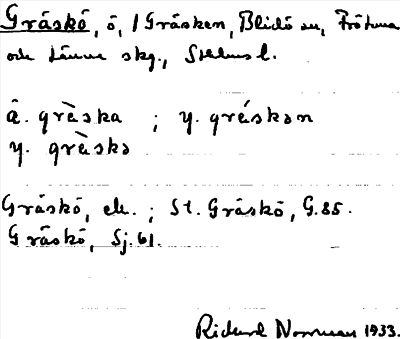 Gräskö, ö, i Gräsken, Blidö sn, Fröluna
och Länna skg., Sthlms l.
ä. grèska ; y. gréskan
y. grèskə
Gräskö, ek. ; St. Gräskö, G.85.
Gräskö, Sj.61.
Rickard Norrman 1933.